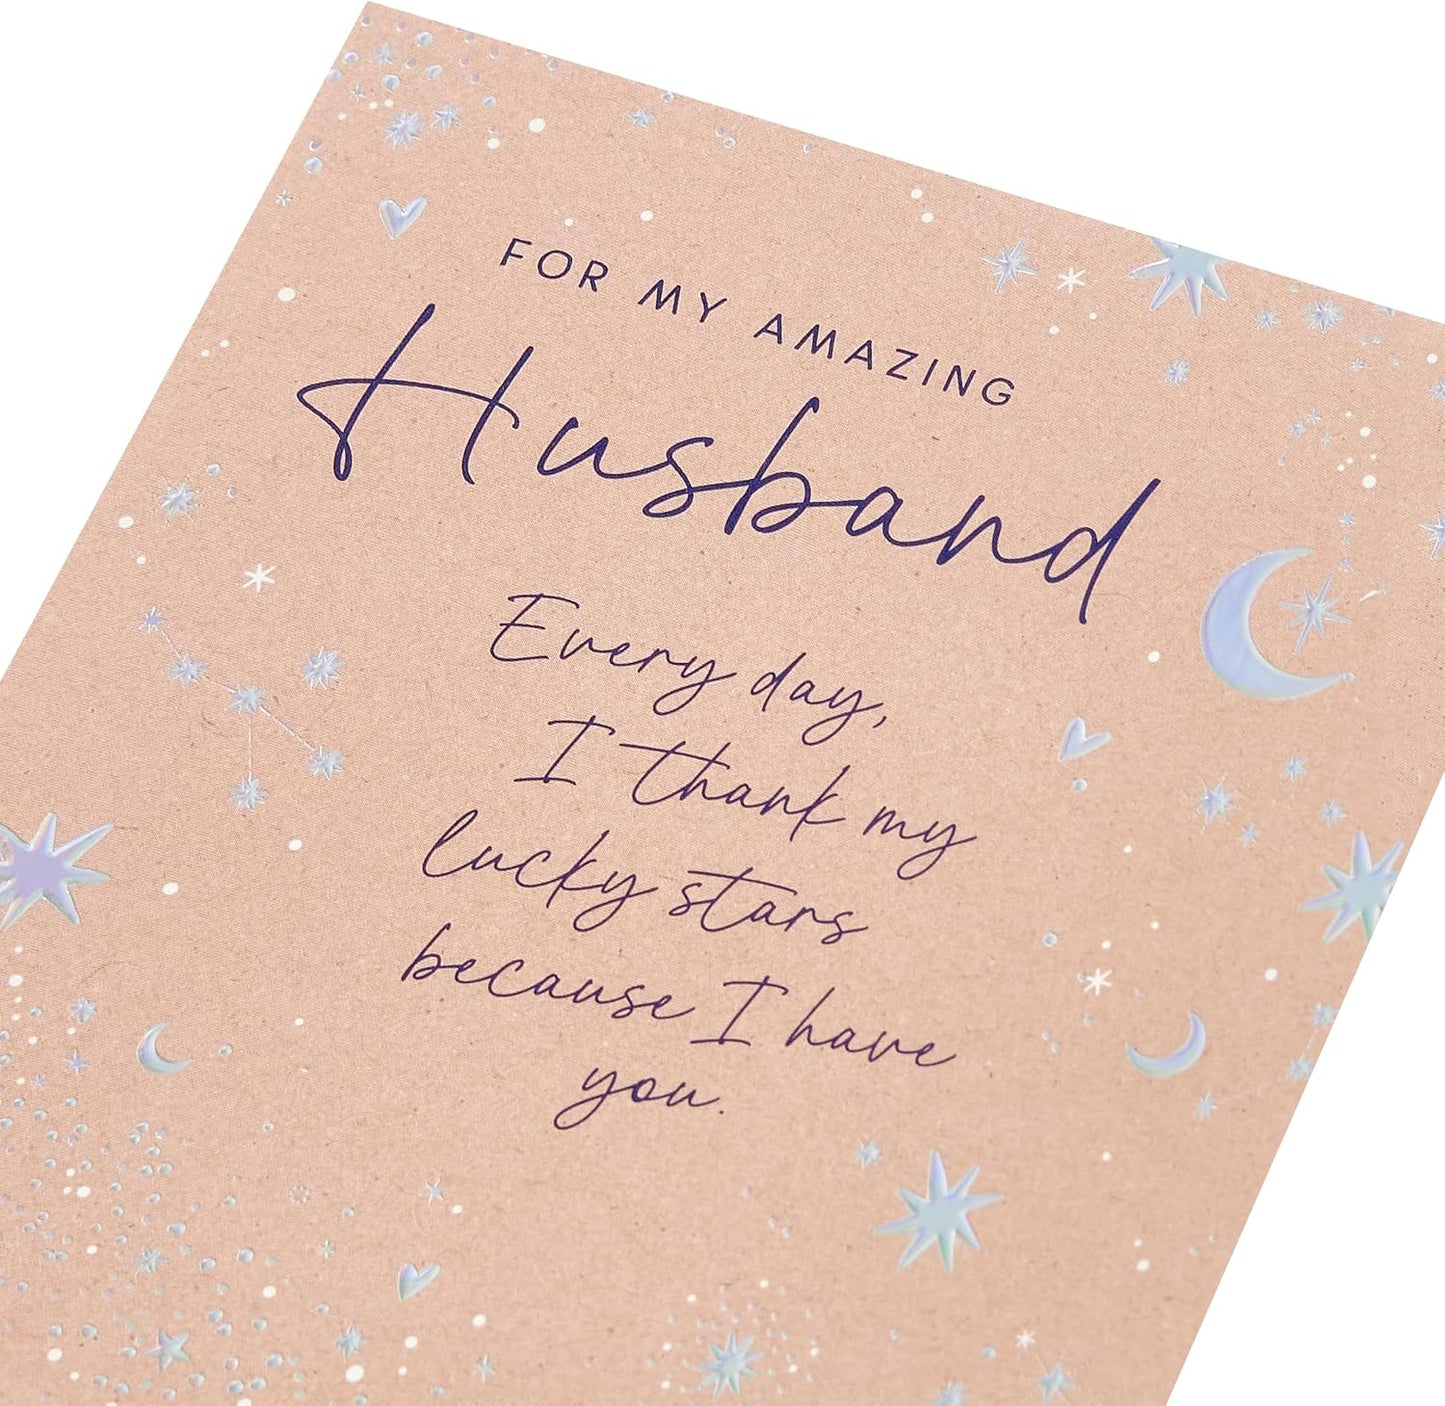 FOR MY AMAZING
Husband
Every day,
I thank my
lucky stars
because I have
you.